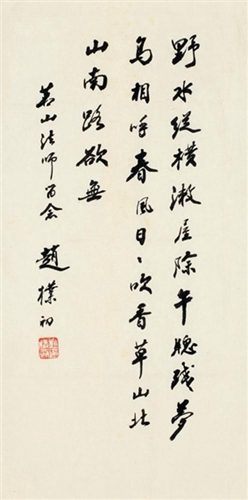 野水縱橫漱屋除午聰殘夢
鳥相呼春風日〻吹香草山北
山南路欲無
茗山法師留念 趙樸初